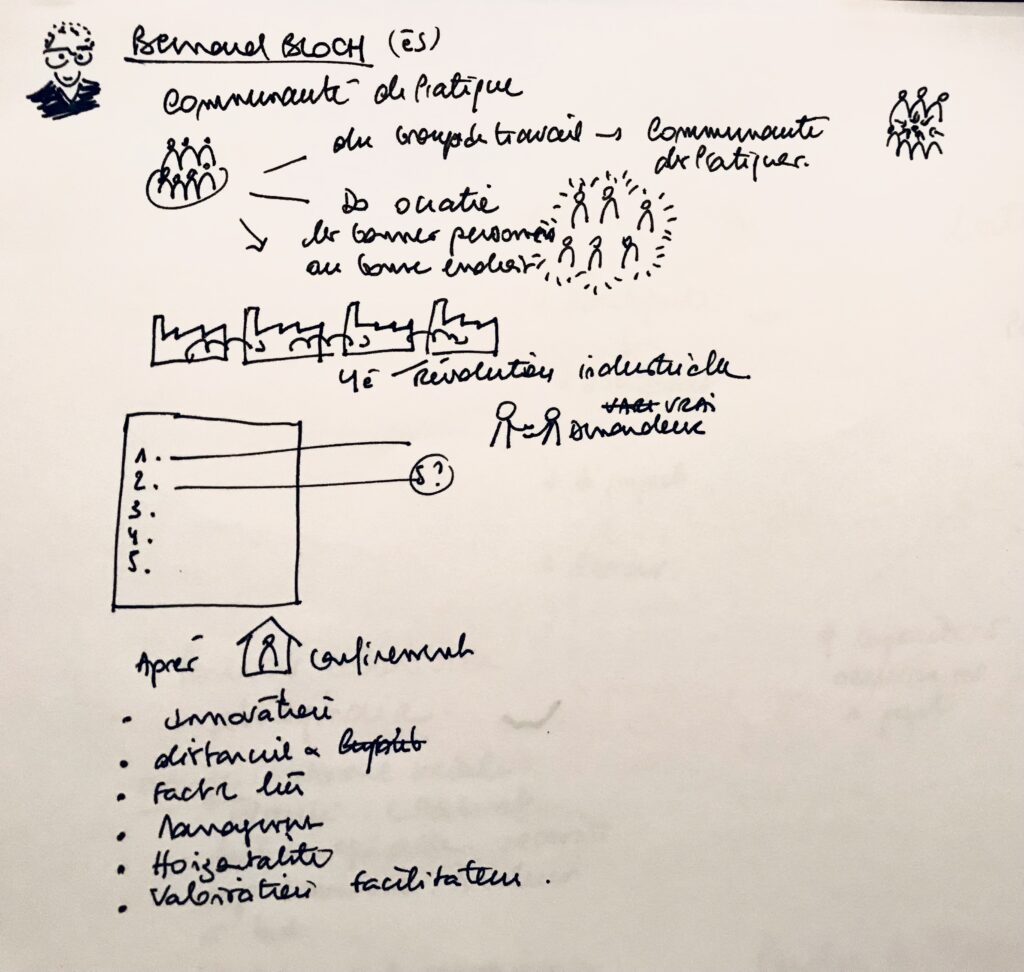 Bernard BLOCH (ES)
Communauté de Pratique
du Groupe de travail → Communauté
de Pratiques.
Do ocratie
les bonnes personnes
au bonne endroit
4è Révolution industrielle
VRAI
1.
2. 5?
3.
4.
5.
Après confinement
• Innovation
• distanciel
• Facte
• Management
• Horizontalité
• Valorisation facilitateur.